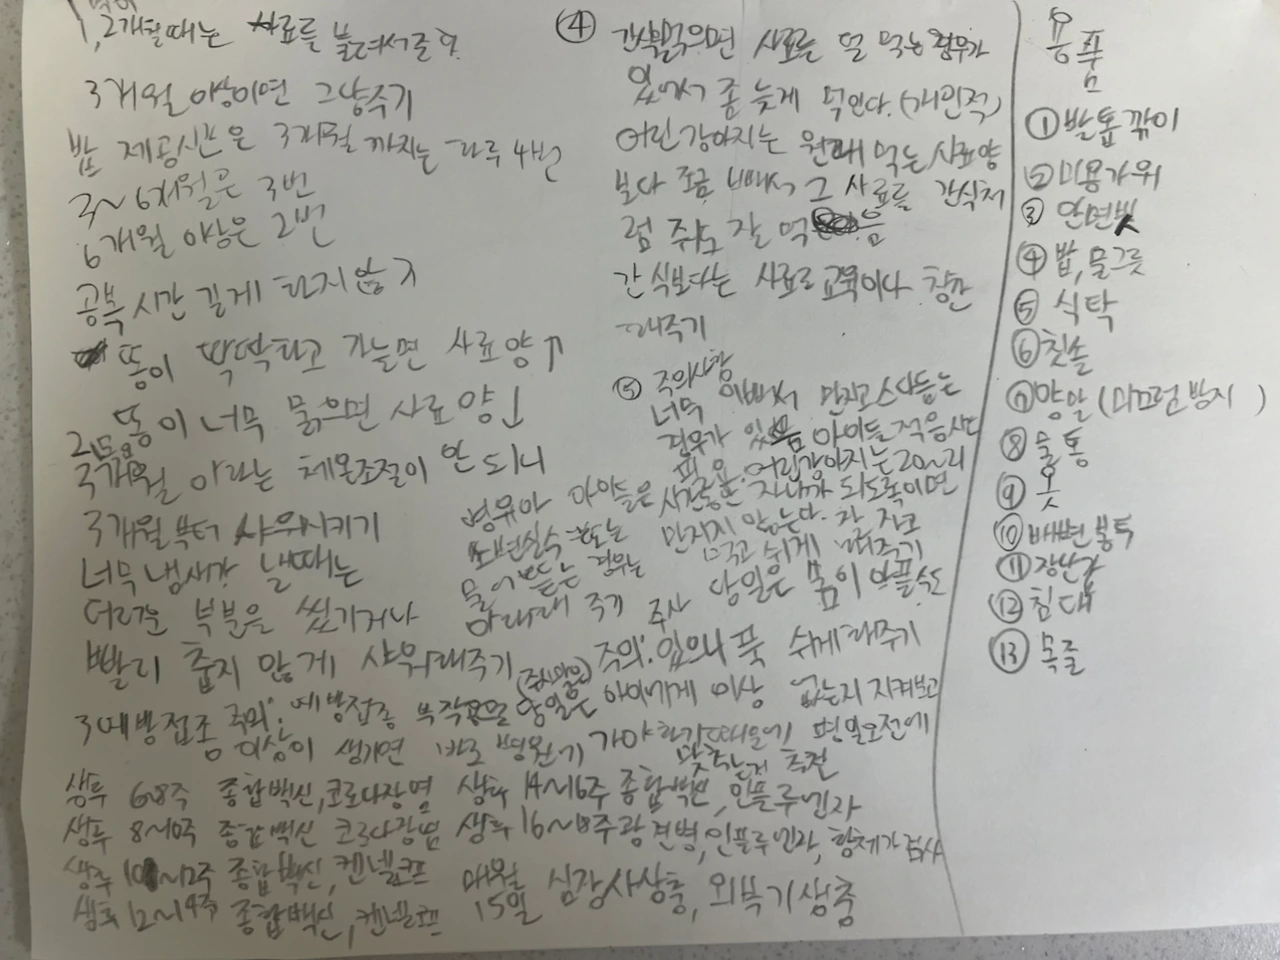 1,2개월때는 사료를 불려서준다.
3개월 이상이면 그냥주기
밥 제공시간은 3개월 까지는 하루 4번
3~6개월은 3번
6개월 이상은 2번
공복 시간 길게 하지않기
똥이 딱딱하고 가늘면 사료양↑
똥이 너무 묽으면 사료양↓
2목욕
3개월 아래는 체온조절이 안 되니
3개월부터 샤워시키기
너무 냄새가 날때는
더러운 부분을 씻기거나
빨리 춥지 않게 샤워해주기
④ 간식을먹으면 사료를 덜 먹는 경우가
있어서 좀 늦게 먹인다.(개인적)
어린강아지는 원래 먹는 사료양
보다 조금 빼서 그 사료를 간식처
럼 줘도 잘 먹음
간식보다는 사료로 교육이나 칭찬
해주기
⑤ 주의사항
너무 이뻐서 만지고 쓰다듬는
경우가 있음 아이들 적응시다
필요. 어린강아지는 20~2시
병유아 아이들은 시간동안 자니까 되도록이면
소변실수 또는 만지지 않는다. 잘 자고
물어뜯는 경우는 먹고 쉬게 해주기
아래대 주기 주사 당일은 몸이 아플수도
주의: 입으니 푹 쉬게 해주기
3예방접종 주의: 예방접종 부작용으로 당일은(주사맞은) 아이에게 이상 없는지 지켜보고
이상이 생기면 바로 병원가 가야 하기때문에 평일오전에
맞추는게 추천
생후 6~8주 종합백신,코로나장염
생후 8~10주 종합백신 코로나장염
생후 10~12주 종합백신,켄넬코프
생후 12~14주 종합백신,켄넬코프
생후 14~16주 종합백신,인플루엔자
생후 16~18주 광견병,인플루엔자, 항체가 검사
매월 15일 심장사상충, 외부기생충
용품
①발톱깎이
②미용가위
③ 안면빗
④밥,물그릇
⑤ 식탁
⑥칫솔
⑦양말(미끄럼방지)
⑧물통
⑨옷
⑩배변봉투
⑪장난감
⑫침대
⑬ 목줄